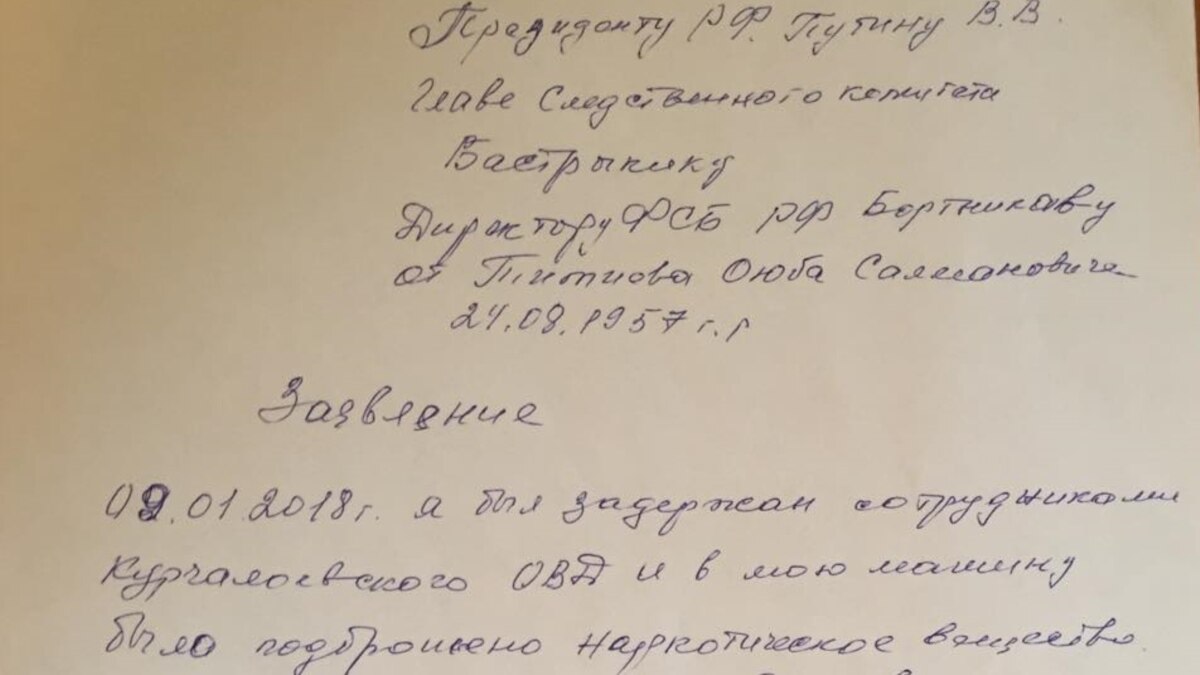 Президенту РФ. Путину В.В.
Главе Следственного комитета
Бастрыкину
Директору ФСБ РФ Бортникову
от Титиева Оюба Салмановича
24.08.1957 г.р
Заявление
09.01.2018г. я был задержан сотрудниками
Курчалоевского ОВД и в мою машину
было подброшено наркотическое вещество.